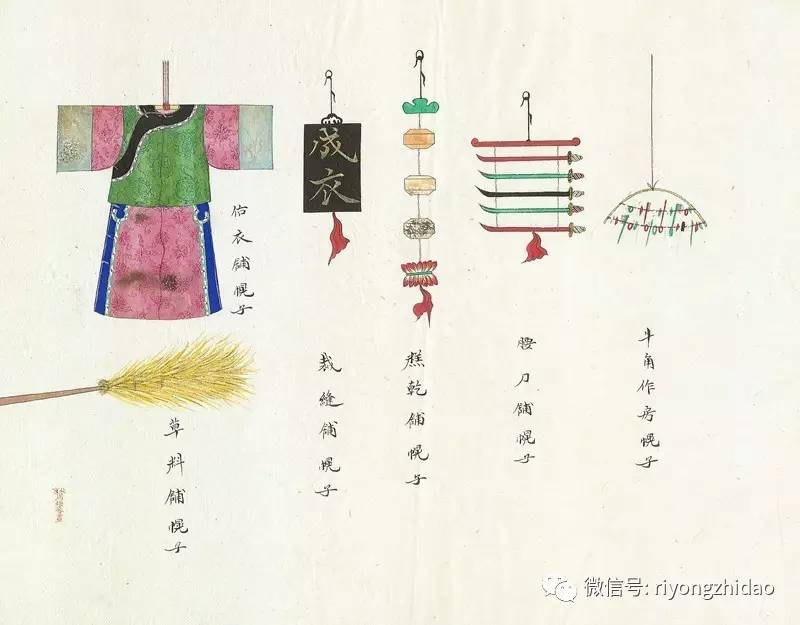 估衣铺幌子
成衣
草料铺幌子
裁缝铺幌子
糕乾铺幌子
腰刀铺幌子
牛角作房幌子
微信号: riyongzhidao